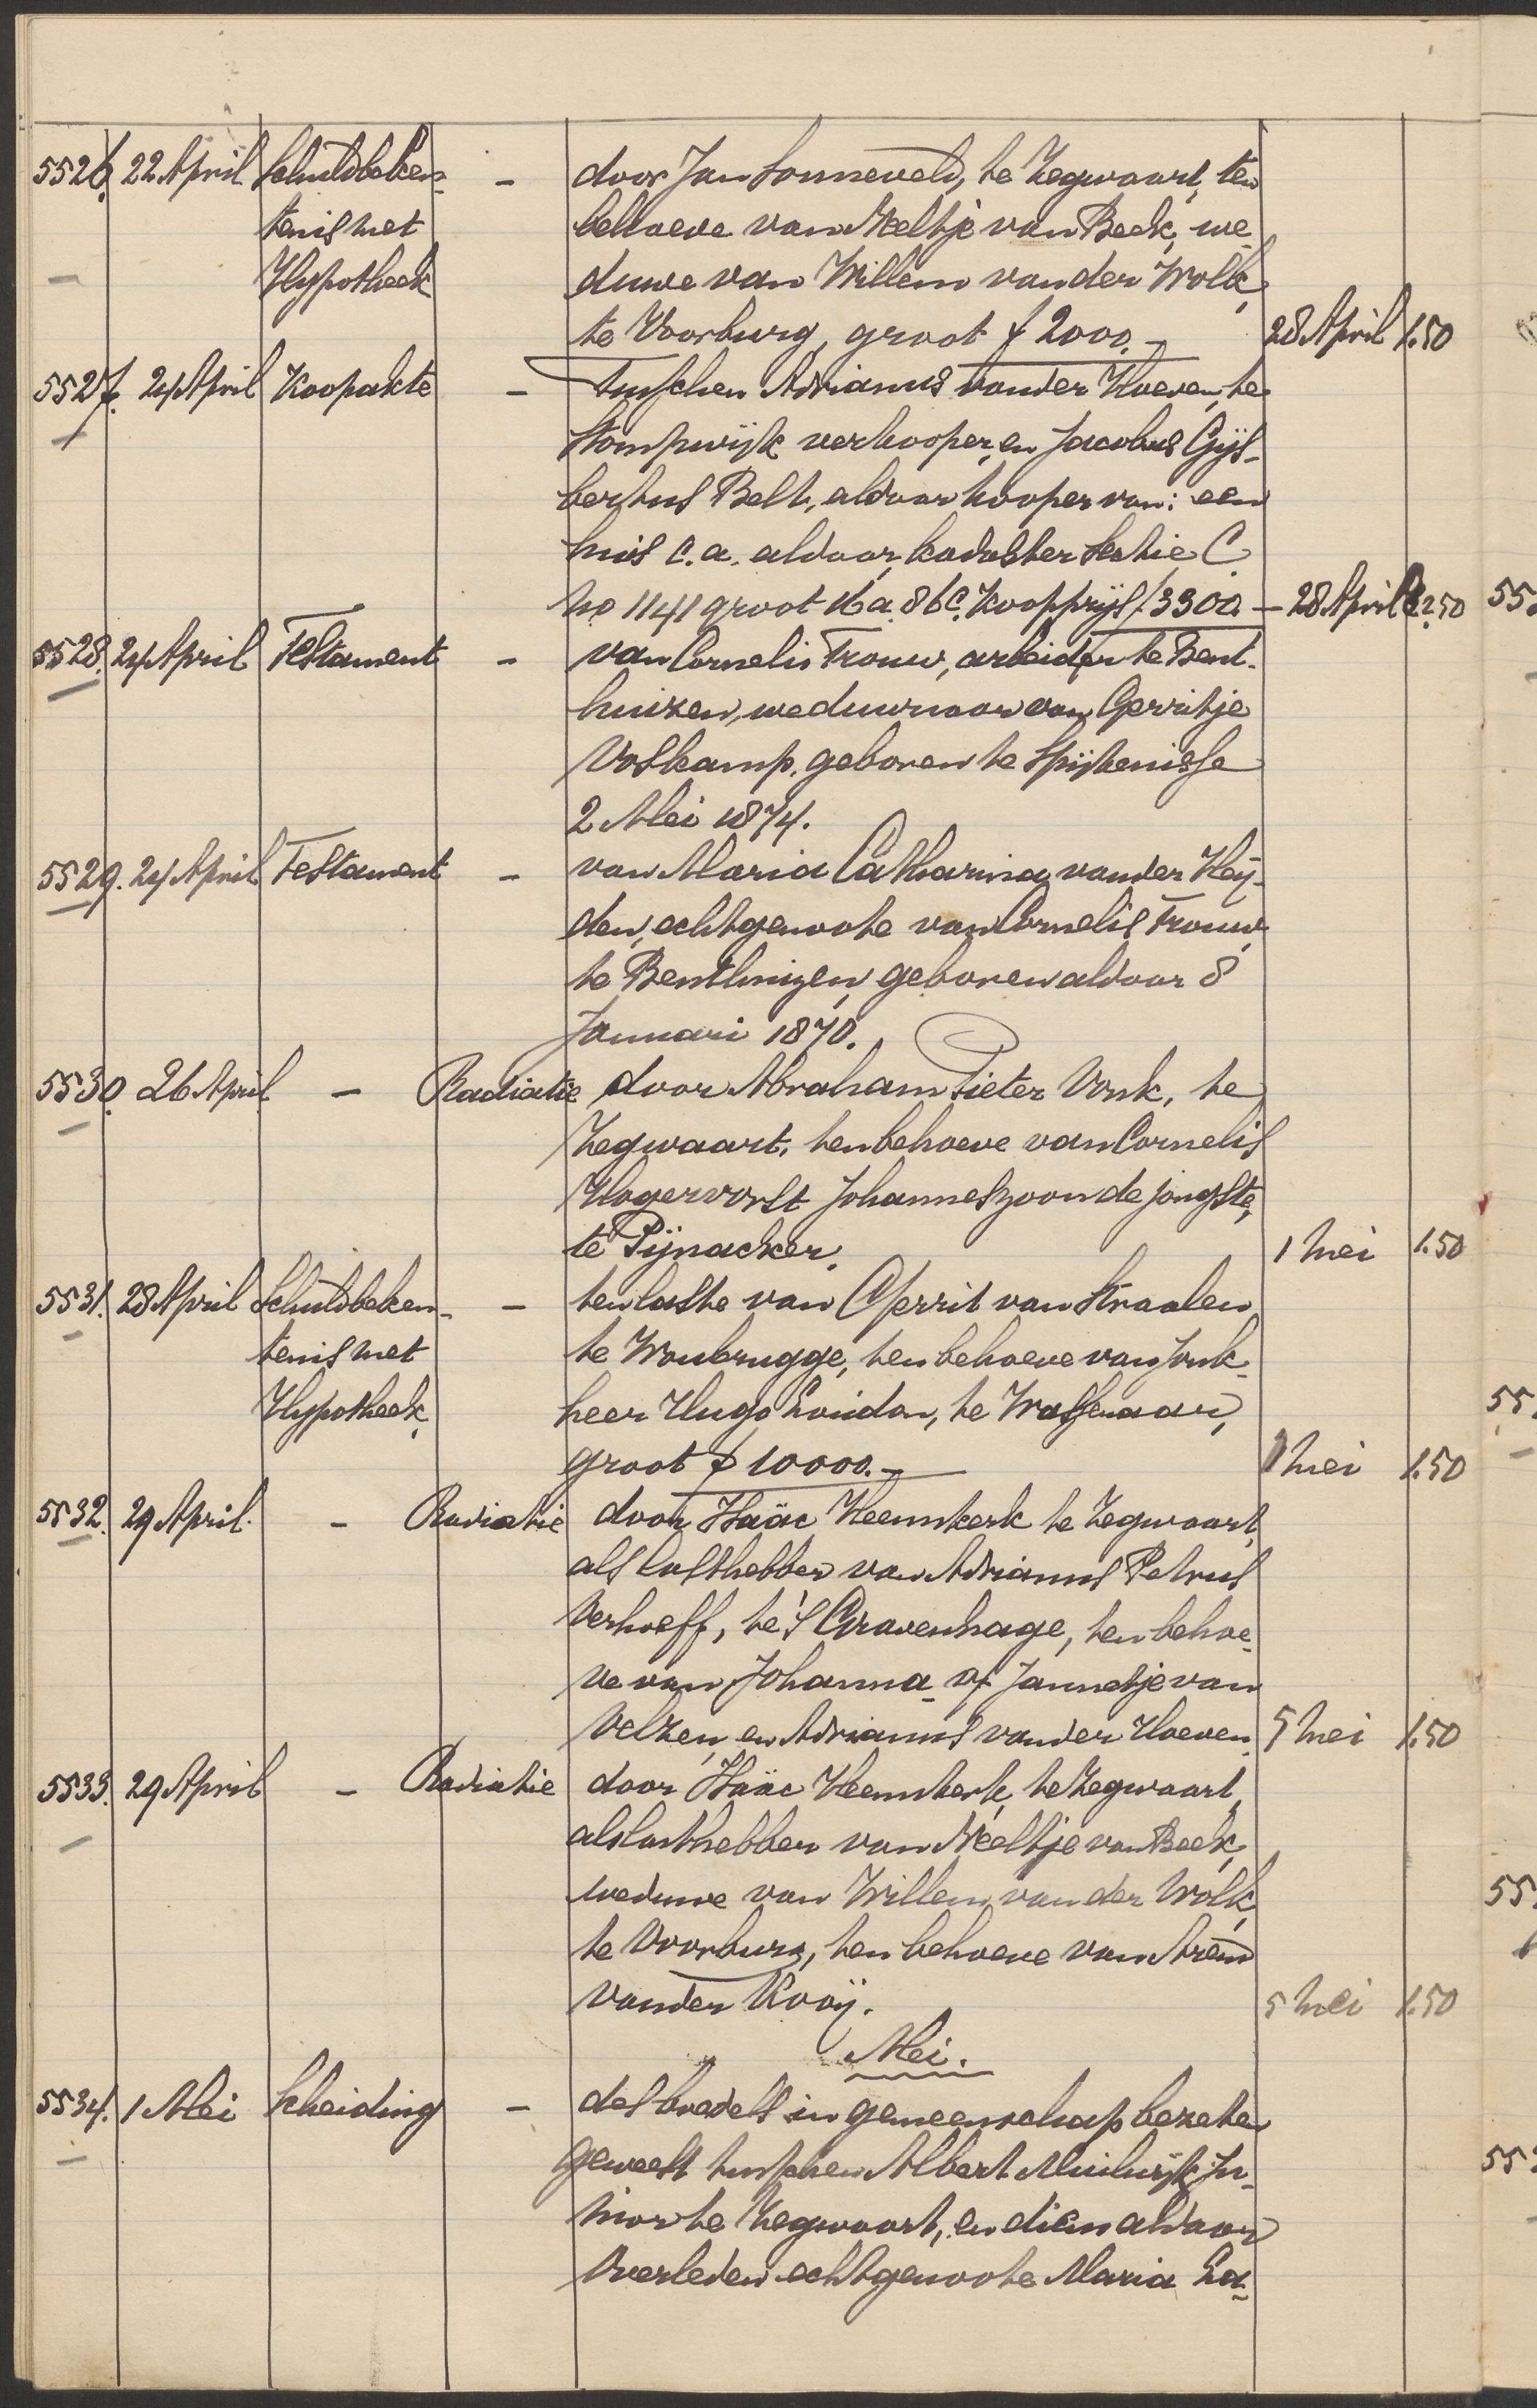 5526. 22 April Schuldbeken- - door Jan Sonneveld, te Zegwaart, ten
tenis met behoeve van Neeltje van Beek, we-
Hypotheek duwe van Willem van der Wolk,
te Voorburg, groot f 2000.- 28 April 1.50
5527. 24 April Koopakte - tusschen Adrianus van der Hoeven, te
Stompwijk verkooper, en Jacobus Gijs-
bertus Belt, aldaar kooper van: een
huis c.a. aldaar, kadaster sectie C.
no 1141 groot 16 a. 86 c. Koopprijs f 3300.- 28 April 2.50
5528. 24 April Testament - van Cornelis Trouw, arbeider te Bent-
huizen, weduwnaar van Gerritje
Voskamp, geboren te Spijkenisse
2 Mei 1874.
5529. 24 April Testament - van Maria Catharina van der Heij-
den, echtgenoote van Cornelis Trouw,
te Benthuizen, geboren aldaar 8
Januari 1870.
5530. 26 April - Radiatie door Abraham Pieter Vonk, te
Zegwaart, ten behoeve van Cornelis
Hogervorst Johanneszoon de jongste,
te Pijnacker. 1 Mei 1.50
5531. 28 April Schuldbeken- - ten laste van Gerrit van Straalen
tenis met te Woubrugge, ten behoeve van Jonk-
Hypotheek, heer Hugo Loudon, te Wassenaar,
groot f 10000.- 1 Mei 1.50
5532. 29 April. - Radiatie door Isaäc Heemskerk te Zegwaart,
als lasthebber van Adrianus Petrus
Verhoeff, te 's Gravenhage, ten behoe-
ve van Johanna of Jannetje van
Velzen, en Adrianus van der Hoeven. 5 Mei 1.50
5533. 29 April - Radiatie door Isaäc Heemskerk, te Zegwaart,
als lasthebber van Neeltje van Beek,
weduwe van Willem van der Wolk,
te Voorburg, ten behoeve van Arend
van der Kooij. 5 Mei 1.50
Mei.
5534. 1 Mei Scheiding - des boedels in gemeenschap bezeten
geweest tusschen Albert Muilwijk Ju-
nior te Zegwaart, en diens aldaar
overleden echtgenoote Maria La-